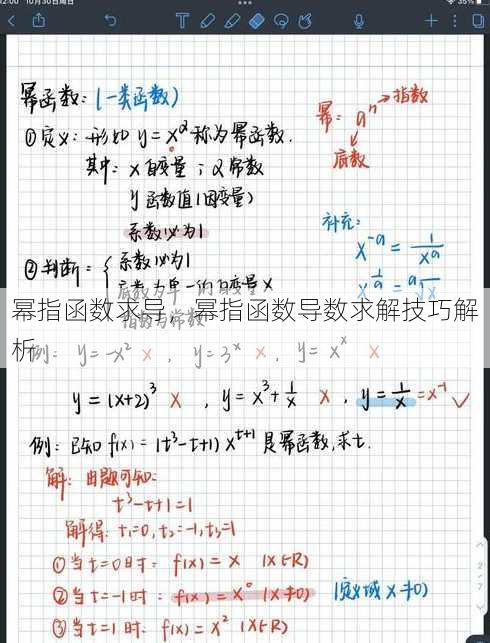 2:00 10月30日周日
35%
幂函数：(一类函数)
幂：aⁿ→指数
底数
①定义：形如 y=xᵅ 称为幂函数.
其中：x自变量；α常数
y函数值(因变量)
系数必为1
补充：
x⁻ᵃ = 1/xᵃ
x^(1/a) = ᵃ√x
②判断：{系数必为1
底数为单一的自变量x
指数为常数
幂指函数求导，幂指函数导数求解技巧解析
例：y=-x² x，y=3ˣ x，y=xˣ x
y=(x+2)³ x，y=x³+1/x x，y=1/x=x⁻¹ ✓
例：已知f(x)=(t³-t+1)xᵗ⁺¹是幂函数,求t.
解：由题可知：
t³-t+1=1
解得：t₁=0,t₂=-1,t₃=1
①当t=0时：f(x)=x (x∈R)
②当t=-1时：f(x)=x⁰ (x≠0) (定义域x≠0)
③当t=1时：f(x)=x² (x∈R)
2/7